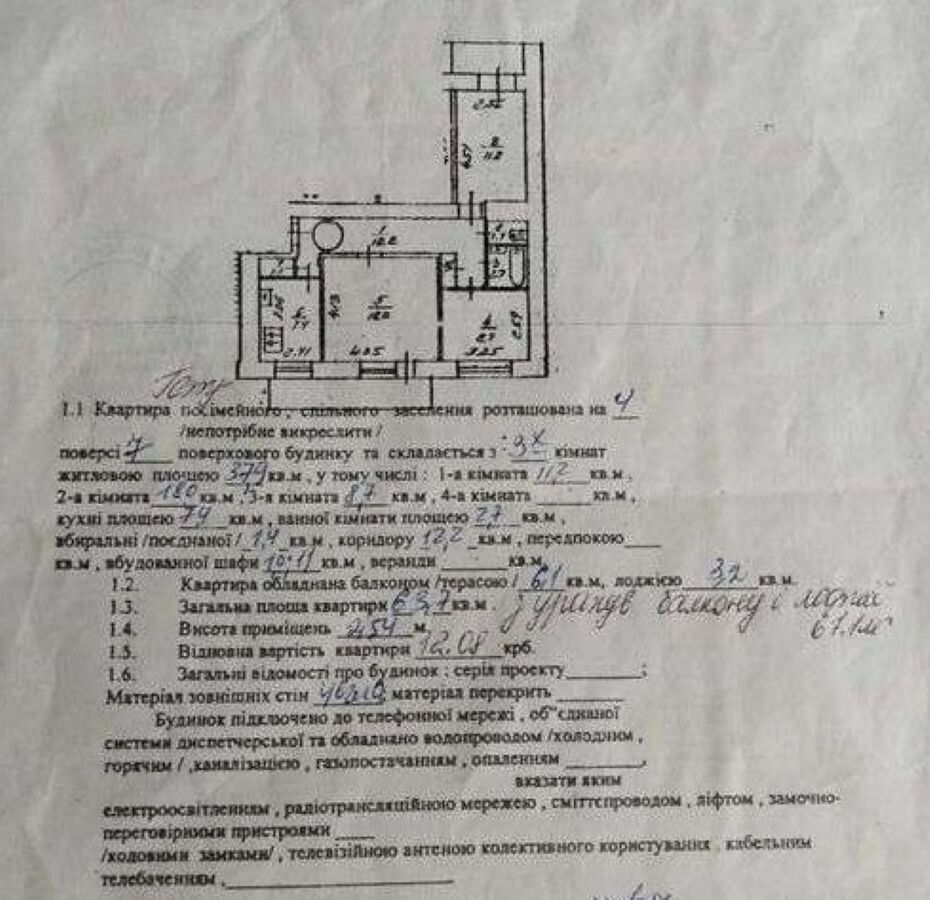 2,56
4,57
2
11,2
1
12,2
4,13
5
18,0
4,35
6
7,4
2,41
4
8,7
3,25
2,59
3
2,7
1.1 Квартира посімейного, спільного заселення розташована на 4
/непотрібне викреслити/
поверсі 7 поверхового будинку та складається з 3х кімнат
житловою площею 37,9 кв.м , у тому числі : 1-а кімната 11,2 кв.м ,
2-а кімната 18,0 кв.м , 3-а кімната 8,7 кв.м , 4-а кімната кв.м ,
кухні площею 7,4 кв.м , ванної кімнати площею 2,7 кв.м ,
вбиральні /поєднаної/ 1,4 кв.м , коридору 12,2 кв.м , передпокою
кв.м , вбудованної шафи кв.м , веранди кв.м.
1.2. Квартира обладнана балконом /терасою/ 6,1 кв.м, лоджією 3,2 кв.м.
1.3. Загальна площа квартири 63,7 кв.м . з урахув балкону і лоджії
67.1м²
1.4. Висота приміщень 2,54 м
1.5. Відновна вартість квартири 72.08 крб.
1.6. Загальні відомості про будинок : серія проекту ;
Матеріал зовнішніх стін матеріал перекрить
Будинок підключено до телефонної мережі , об"єднаної
системи диспетчерської та обладнано водопроводом /холодним ,
горячим / ,каналізацією , газопостачанням , опаленням ,
вказати яким
електроосвітленням , радіотрансляційною мережею , сміттєпроводом , ліфтом , замочно-
переговірними пристроями
/кодовими замками/ , телевізійною антеною колективного користування , кабельним
телебаченням ,